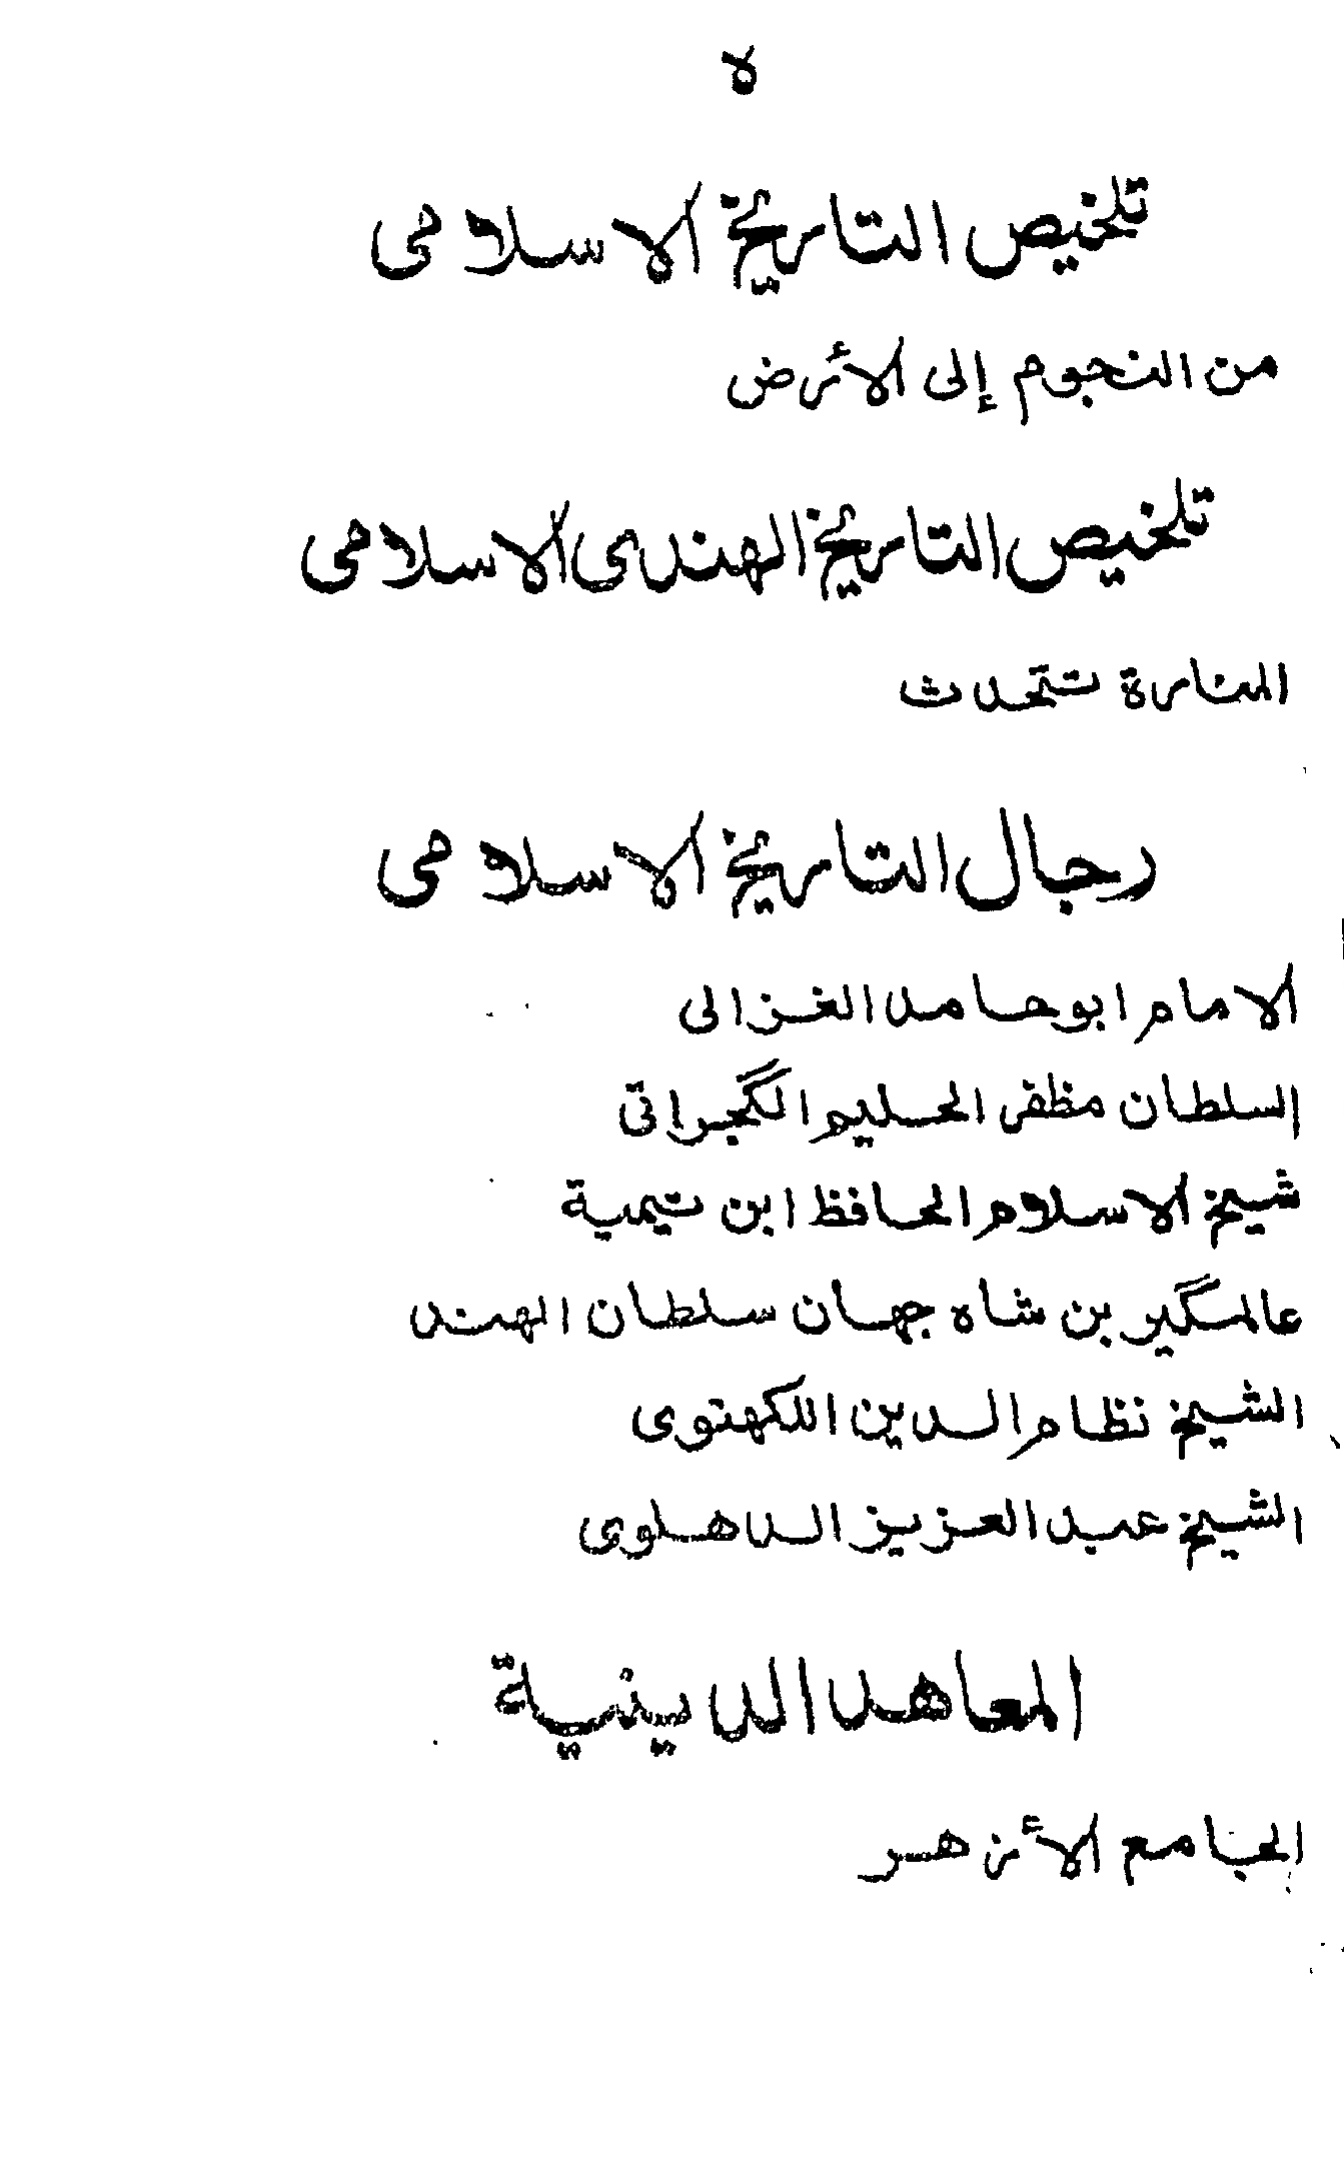 لا
تلخيص التاريخ الاسلامى
من النجوم إلى الأرض
تلخيص التاريخ الهندى الاسلامى
المنارة تتحدث
رجال التاريخ الاسلامى
الامام ابو حامد الغزالى
السلطان مظفر الحليم الگجراتى
شيخ الاسلام الحافظ ابن تيمية
عالمگير بن شاه جهان سلطان الهند
الشيخ نظام الدين اللكهنوى
الشيخ عبد العزيز الدهلوى
المعاهد الدينية
الجامع الأزهر